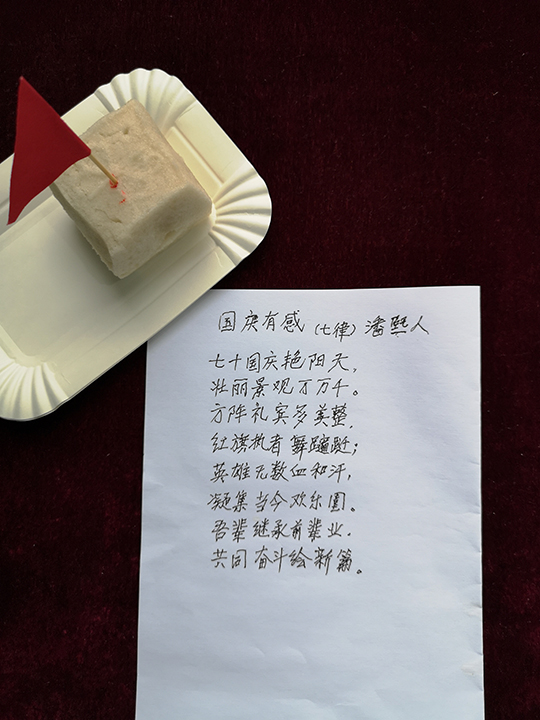 国庆有感 (七律) 潘熙人
七十国庆艳阳天,
壮丽景观万万千。
方阵礼宾多美整,
红旗执者舞蹁跹;
英雄无数血和汗,
凝集当今欢乐圆。
吾辈继承前辈业.
共同奋斗绘新篇。